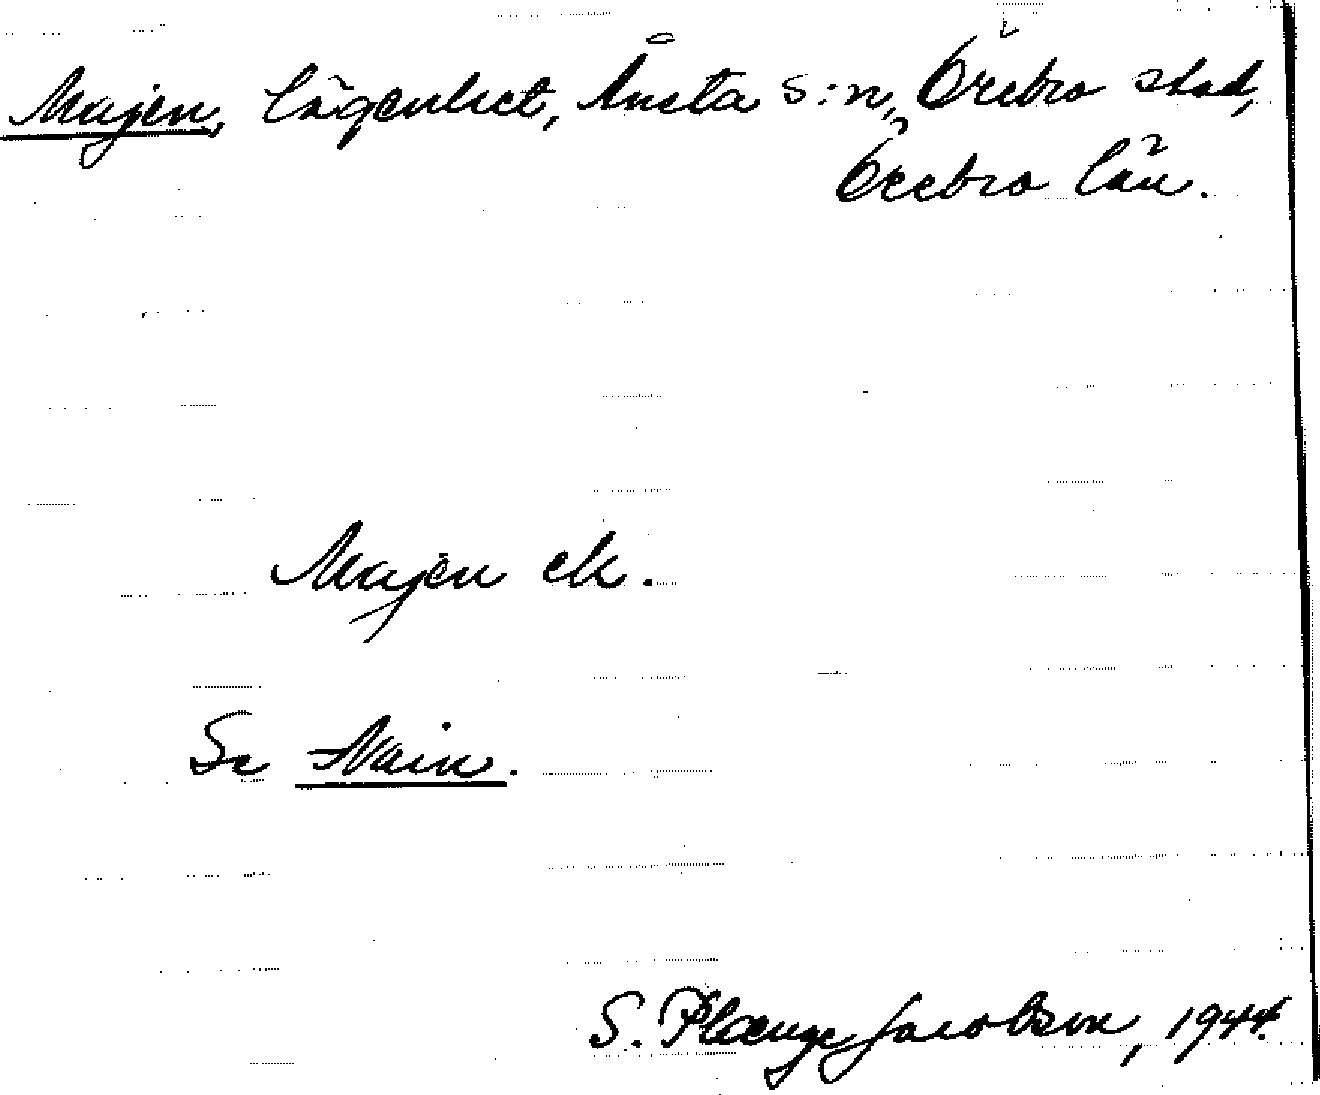 Majen, lägenhet, Ånsta s:n, Örebro stad,
Örebro län.
Majen ek.
Se Main.
S. Plænge Jacobson, 1944.